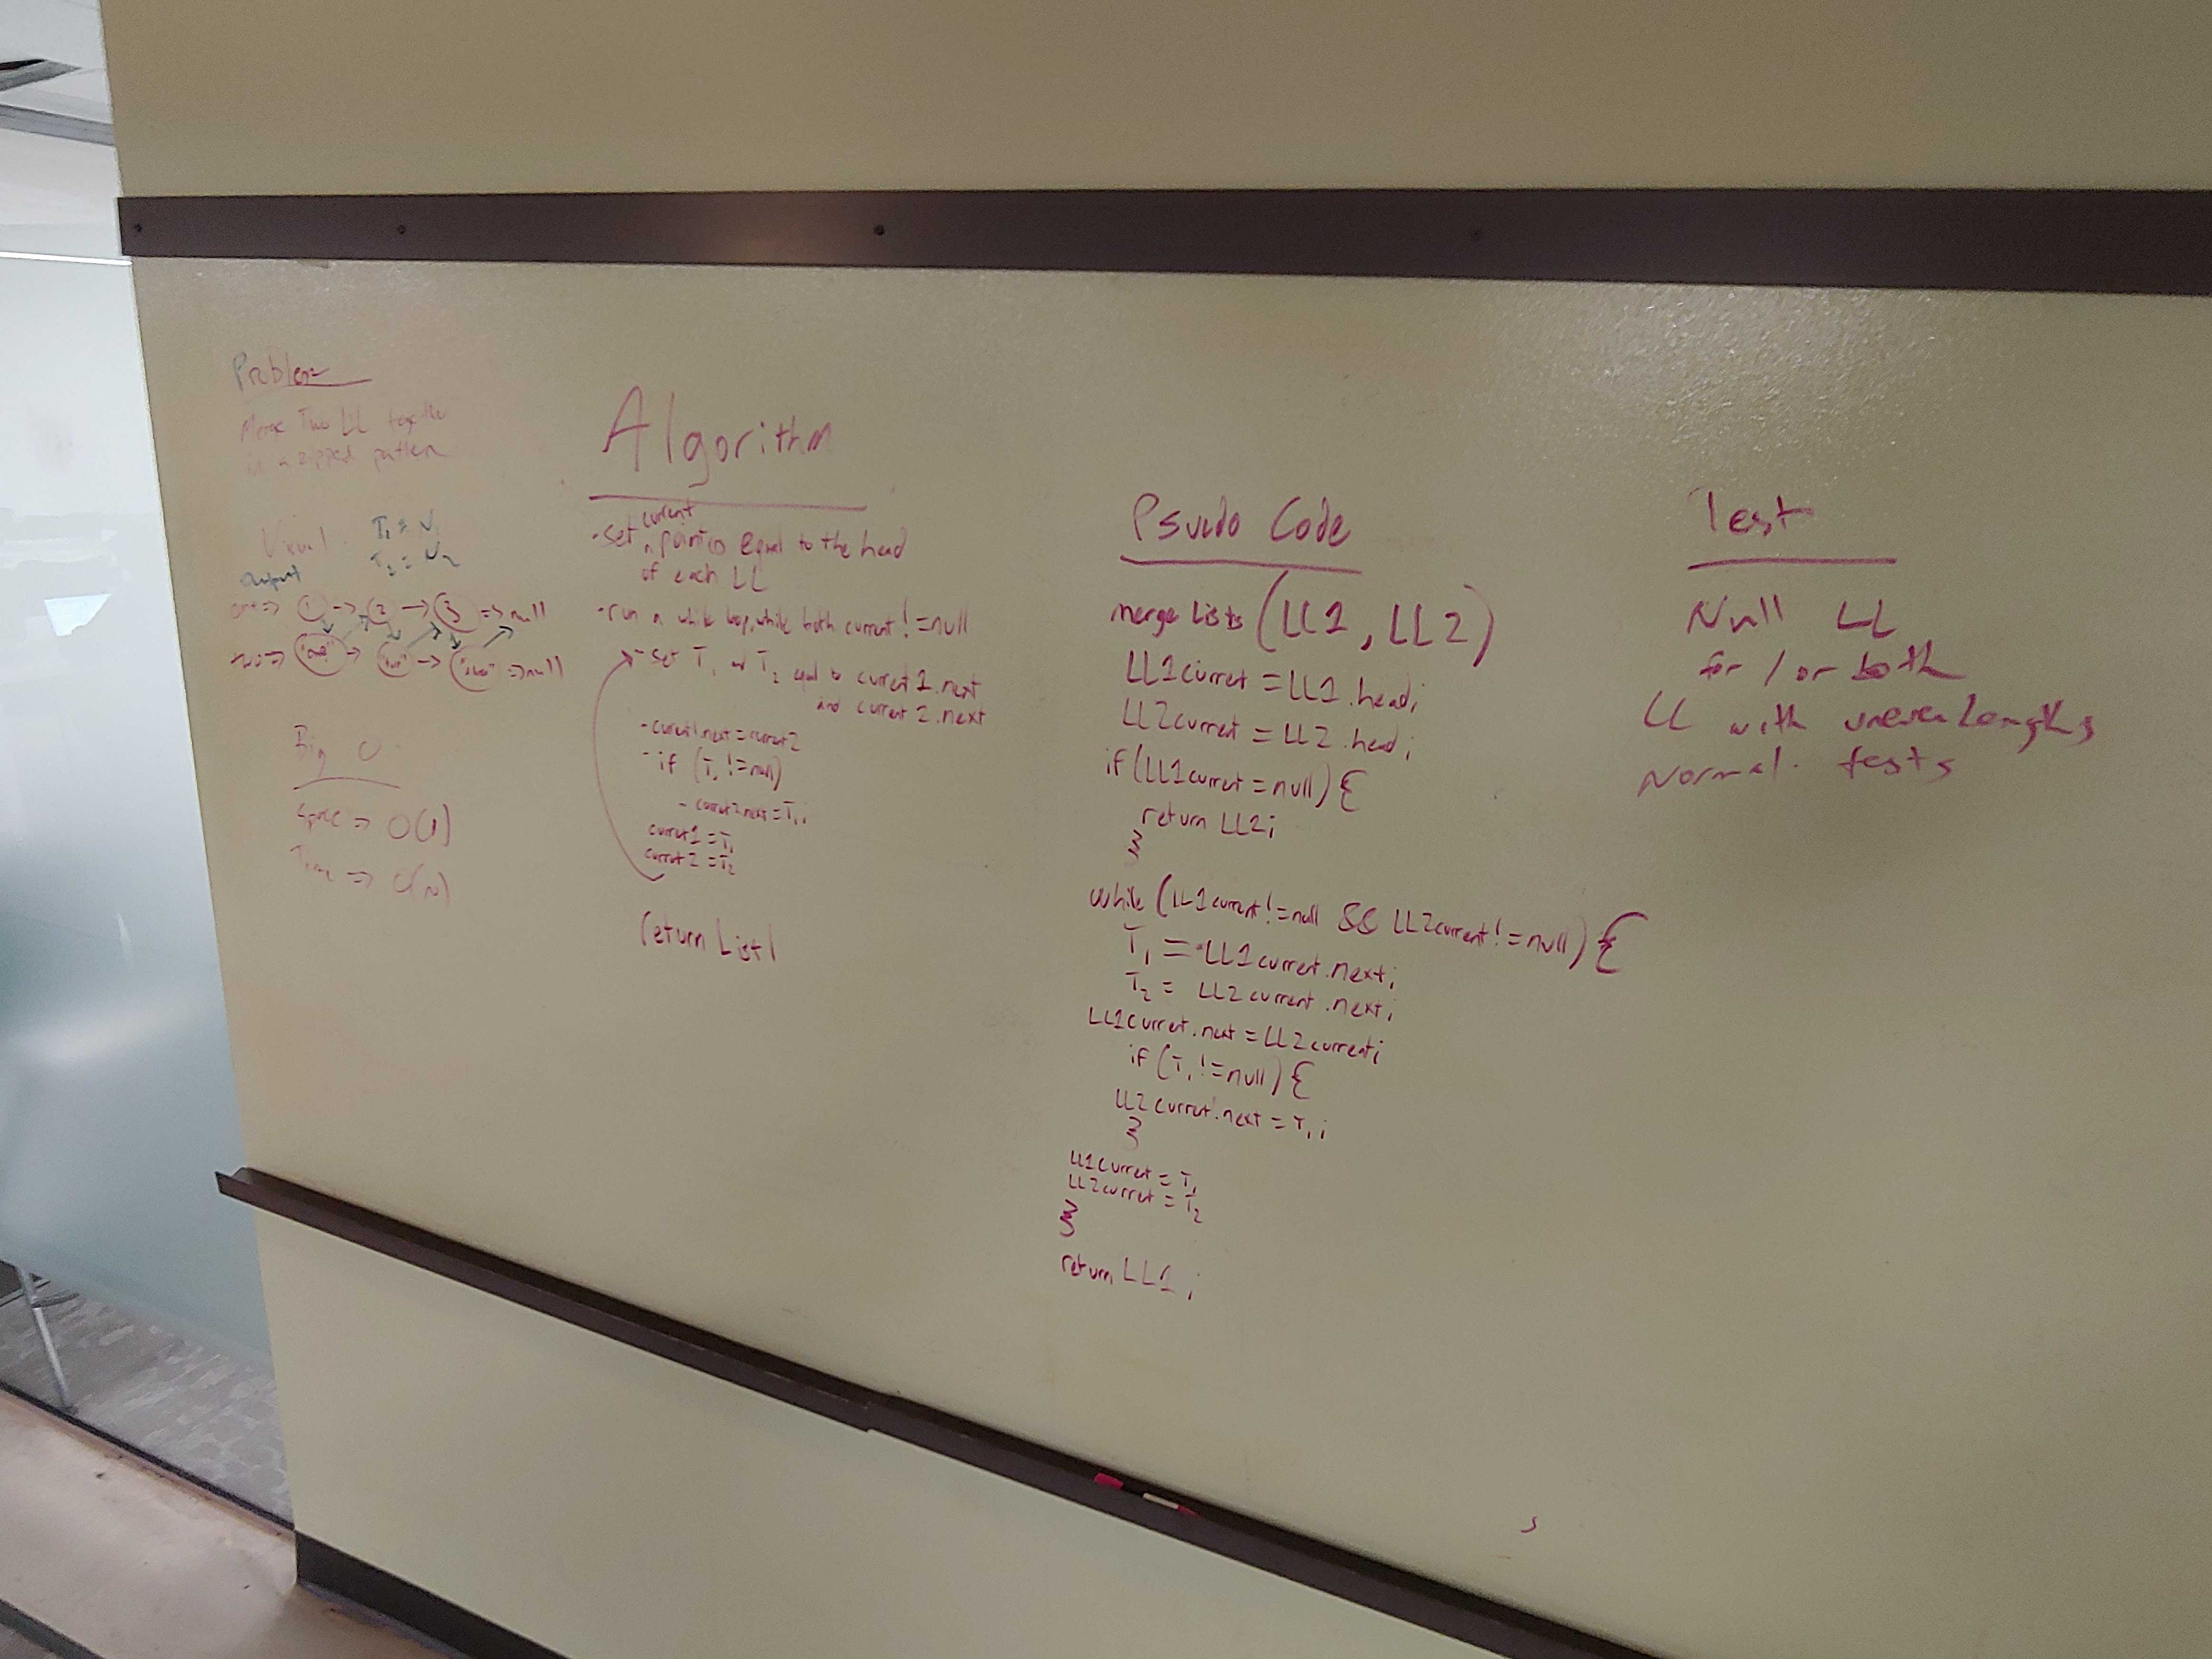 Problem
Merge Two LL together
in a zipped pattern
Visual
T1 =
T2 =
output
one=> 1 -> 2 -> 3 => null
two=> "one" -> "two" -> => null
Big O
Space => O(1)
Time => O(N)
Algorithm
current
- set a equal to the head
of each LL
- run a while loop, while both current != null
- set T1 and T2 equal to curret1.next
and curret2.next
- curret1.next = curret2
- if (T1 != null)
- curret2.next = T1;
curret1 = T1
curret2 = T2
return List1
Psudo Code
merge Lists (LL1, LL2)
LL1curret = LL1.head;
LL2curret = LL2.head;
if (LL1curret = null) {
return LL2;
}
while (LL1current != null && LL2current != null) {
T1 = LL1current.next;
T2 = LL2current.next;
LL1curret.next = LL2current;
if (T1 != null) {
LL2curret.next = T1;
}
LL1curret = T1
LL2curret = T2
}
return LL1;
Test
Null LL
for 1 or both
LL with uneven lengths
Normal. tests